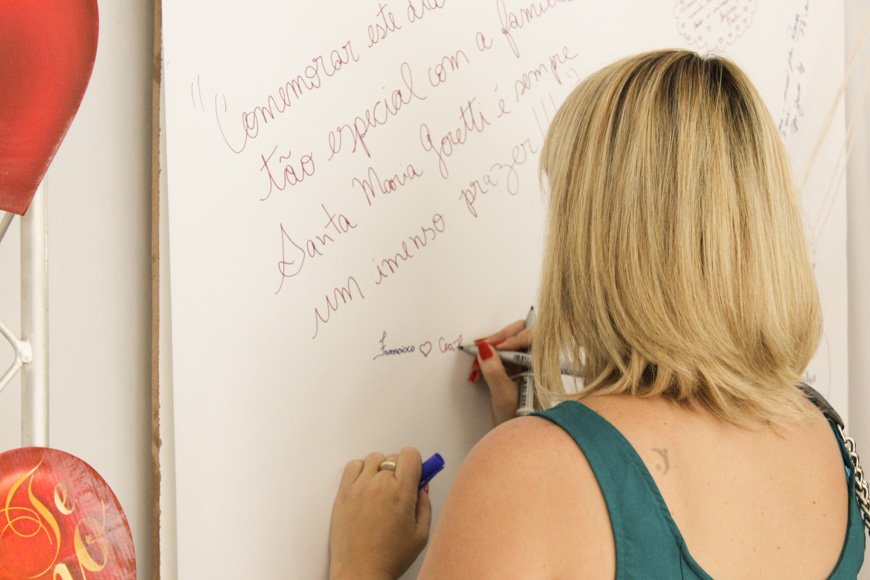 "Comemorar este dia
tão especial com a família
Santa Maria Goretti é sempre
um imenso prazer!!!"
Francisco ♡
Te